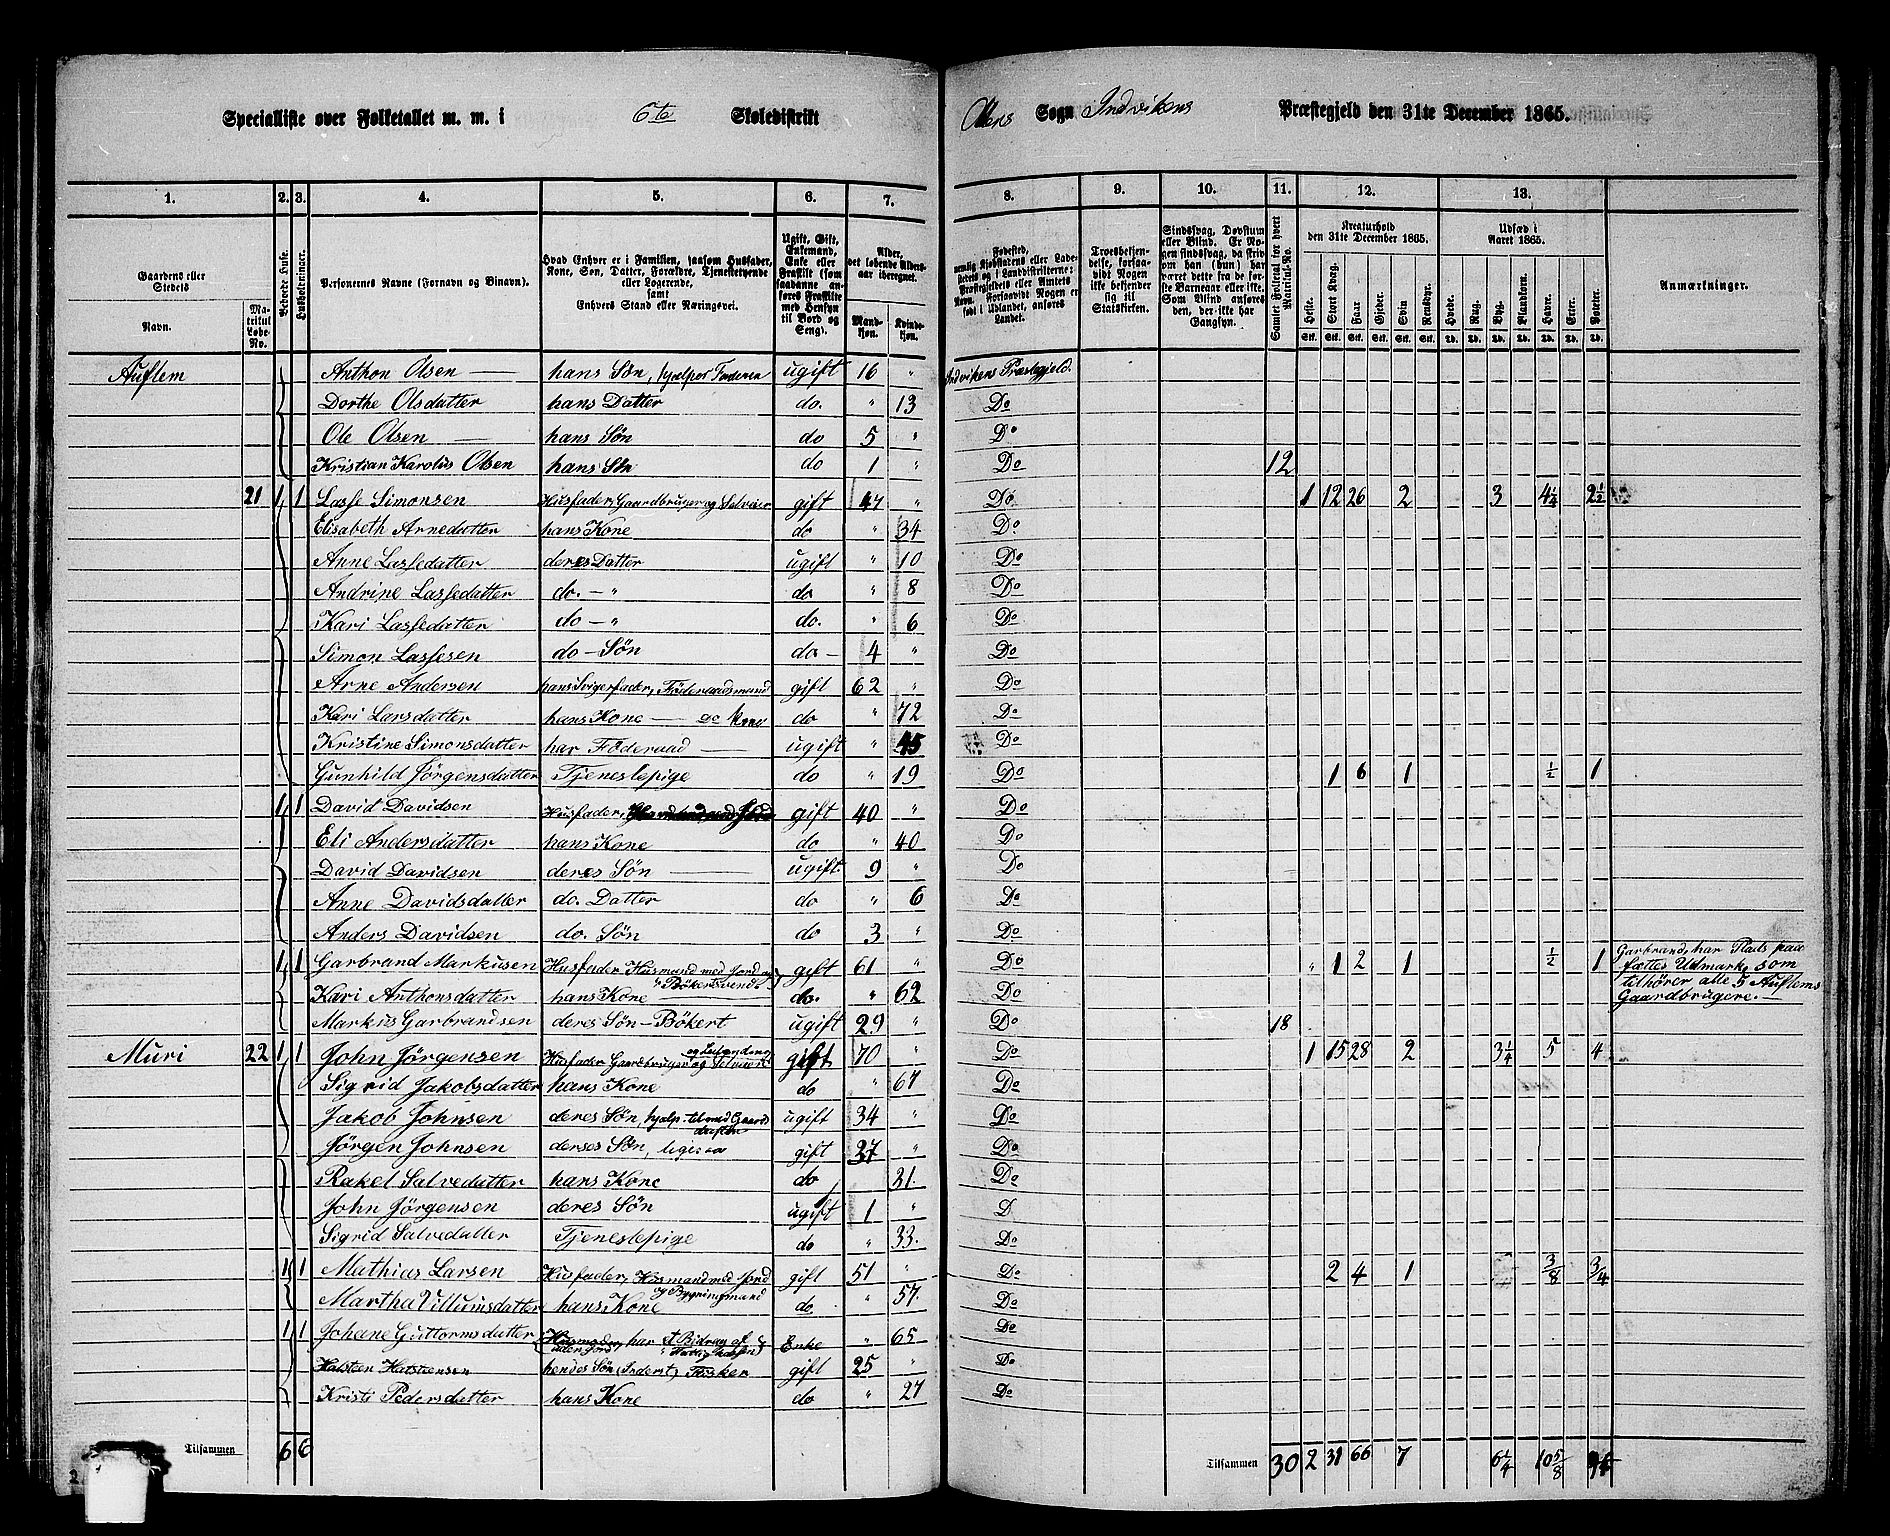 Specialliste over Folketallet m. m. i 6te Skoledistrikt
Olens Sogn Indvikens Præstegjeld den 31te December 1865.
1. 2. 3. 4. 5. 6. 7.
8. 9. 10. 11. 12. 13.
Gaardens eller Stedets
Navn.
Matrikul Løbe-No.
Beboede Huse.
Husholdninger.
Personernes Navne (Fornavn og Binavn).
Hvad Enhver er i Familien, saasom Husfader, Kone, Søn, Datter, Forældre, Tjenestetyende eller Logerende, samt Enhvers Stand eller Næringsvei.
Ugift, Gift, Enkemand, Enke eller Fraskilt (som saadanne anføres Fraskilte med Hensyn til Bord og Seng).
Alder, det løbende Aldersaar iberegnet.
Mandkjøn.
Kvindekjøn.
Fødested, nemlig Kjøbstadens eller Ladestedets og i Landdistrikterne: Præstegjeldets eller Amtets Navn. Forsaavidt Nogen er født i Udlandet, anføres Landet.
Troesbekjendelse, forsaavidt Nogen ikke bekjender sig til Statskirken.
Sindssvag, Døvstum eller Blind. Er Nogen sindssvag, da skrives om han (hun) har været dette fra de første Barneaar eller ikke. Som Blind anføres den, der ikke har Gangsyn.
Samlet Folketal for hvert Matrikul-No.
Kreaturhold den 31te December 1865.
Heste. Stort Kvæg. Faar. Gjeder. Svin. Rensdyr.
Udsæd i Aaret 1865.
Hvede. Rug. Byg. Blandkorn. Havre. Erter. Poteter.
Anmærkninger.
Auflem Anthon Olsen — hans Søn, hjælper Faderen ugift 16 " Indvikens Præstegjeld.
Dorthe Olsdatter hans Datter do. " 13 Do
Ole Olsen — hans Søn do 5 " Do
Kristian Karolus Olsen hans Søn do 1 " Do 12
21 1 1 Lasse Simonsen Husfader, Gaardbruger og Selveier gift 47 " Do. 1 12 26 2 3 4½ 2½
Elisabeth Arnedatter hans Kone do " 34 Do
Anne Lassedatter deres Datter ugift " 10 Do
Andrine Lassedatter do. – " do " 8 Do
Kari Lassedatter do – " do. " 6 Do
Simon Lassesen do – Søn do – 4 " Do
Arne Andersen hans Svigerfader, Föderaadsmand gift 62 " Do
Kari Larsdatter hans Kone — do Kone do " 72 Do
Kristine Simonsdatter har Föderaad — ugift " 45 Do
Gunhild Jörgensdatter Tjenestepige do " 19 Do 1 6 1 ½ 1
1 1 David Davidsen Husfader, gift 40 " Do
Eli Andersdatter hans Kone do " 40 Do
David Davidsen deres Søn — ugift. 9 " Do
Anne Davidsdatter do. Datter do " 6 Do
Anders Davidsen do. Søn do 3 " Do
1 1 Garbrand Markusen Husfader Husmand med Jord og Bökersvend gift 61 " Do " 1 2 1 ½ 1 Garbrand, har Plads paa
Kari Anthonsdatter hans Kone — do. " 62 Do fættes Udmark, som
tilhörer alle 5 Auflems
Markus Garbrandsen deres Søn – Bökert ugift 29 " Do 18 Gaardbrugere. —
Muri 22 1 1 John Jörgensen Husfader Gaardbruger og Selveier gift 70 " Do 1 15 28 2 3¼ 5 4
Sigrid Jakobsdatter hans Kone do " 67 Do
Jakob Johnsen deres Søn, hjælp. til med Gaardsdriften ugift 34 " Do
Jörgen Johnsen derses Søn, ligesaa gift 37 " Do
Rakel Salvedatter hans Kone do 21. Do
John Jörgensen deres Søn ugift 1 " D
Sigrid Salvedatter Tjenestepige do " 33. Do
1 1 Mathias Larsen Husfader, Husmand med Jord og Bygningsmand gift 51 " Do 2 4 1 3/8 3/4
Martha Villumsdatter hans Kone do " 57. Do
1 1 Johane Guttormsdatter har et Bidrag af Enke " 65 Do
Halsteen Halsteensen hendes Søn (Inderst) Fisker gift 25 " Do
Kristi Pedersdatter hans Kone do " 27 Do
Tilsammen 6 6
Tilsammen 30 2 31 66 7 6¼ 10 5/8